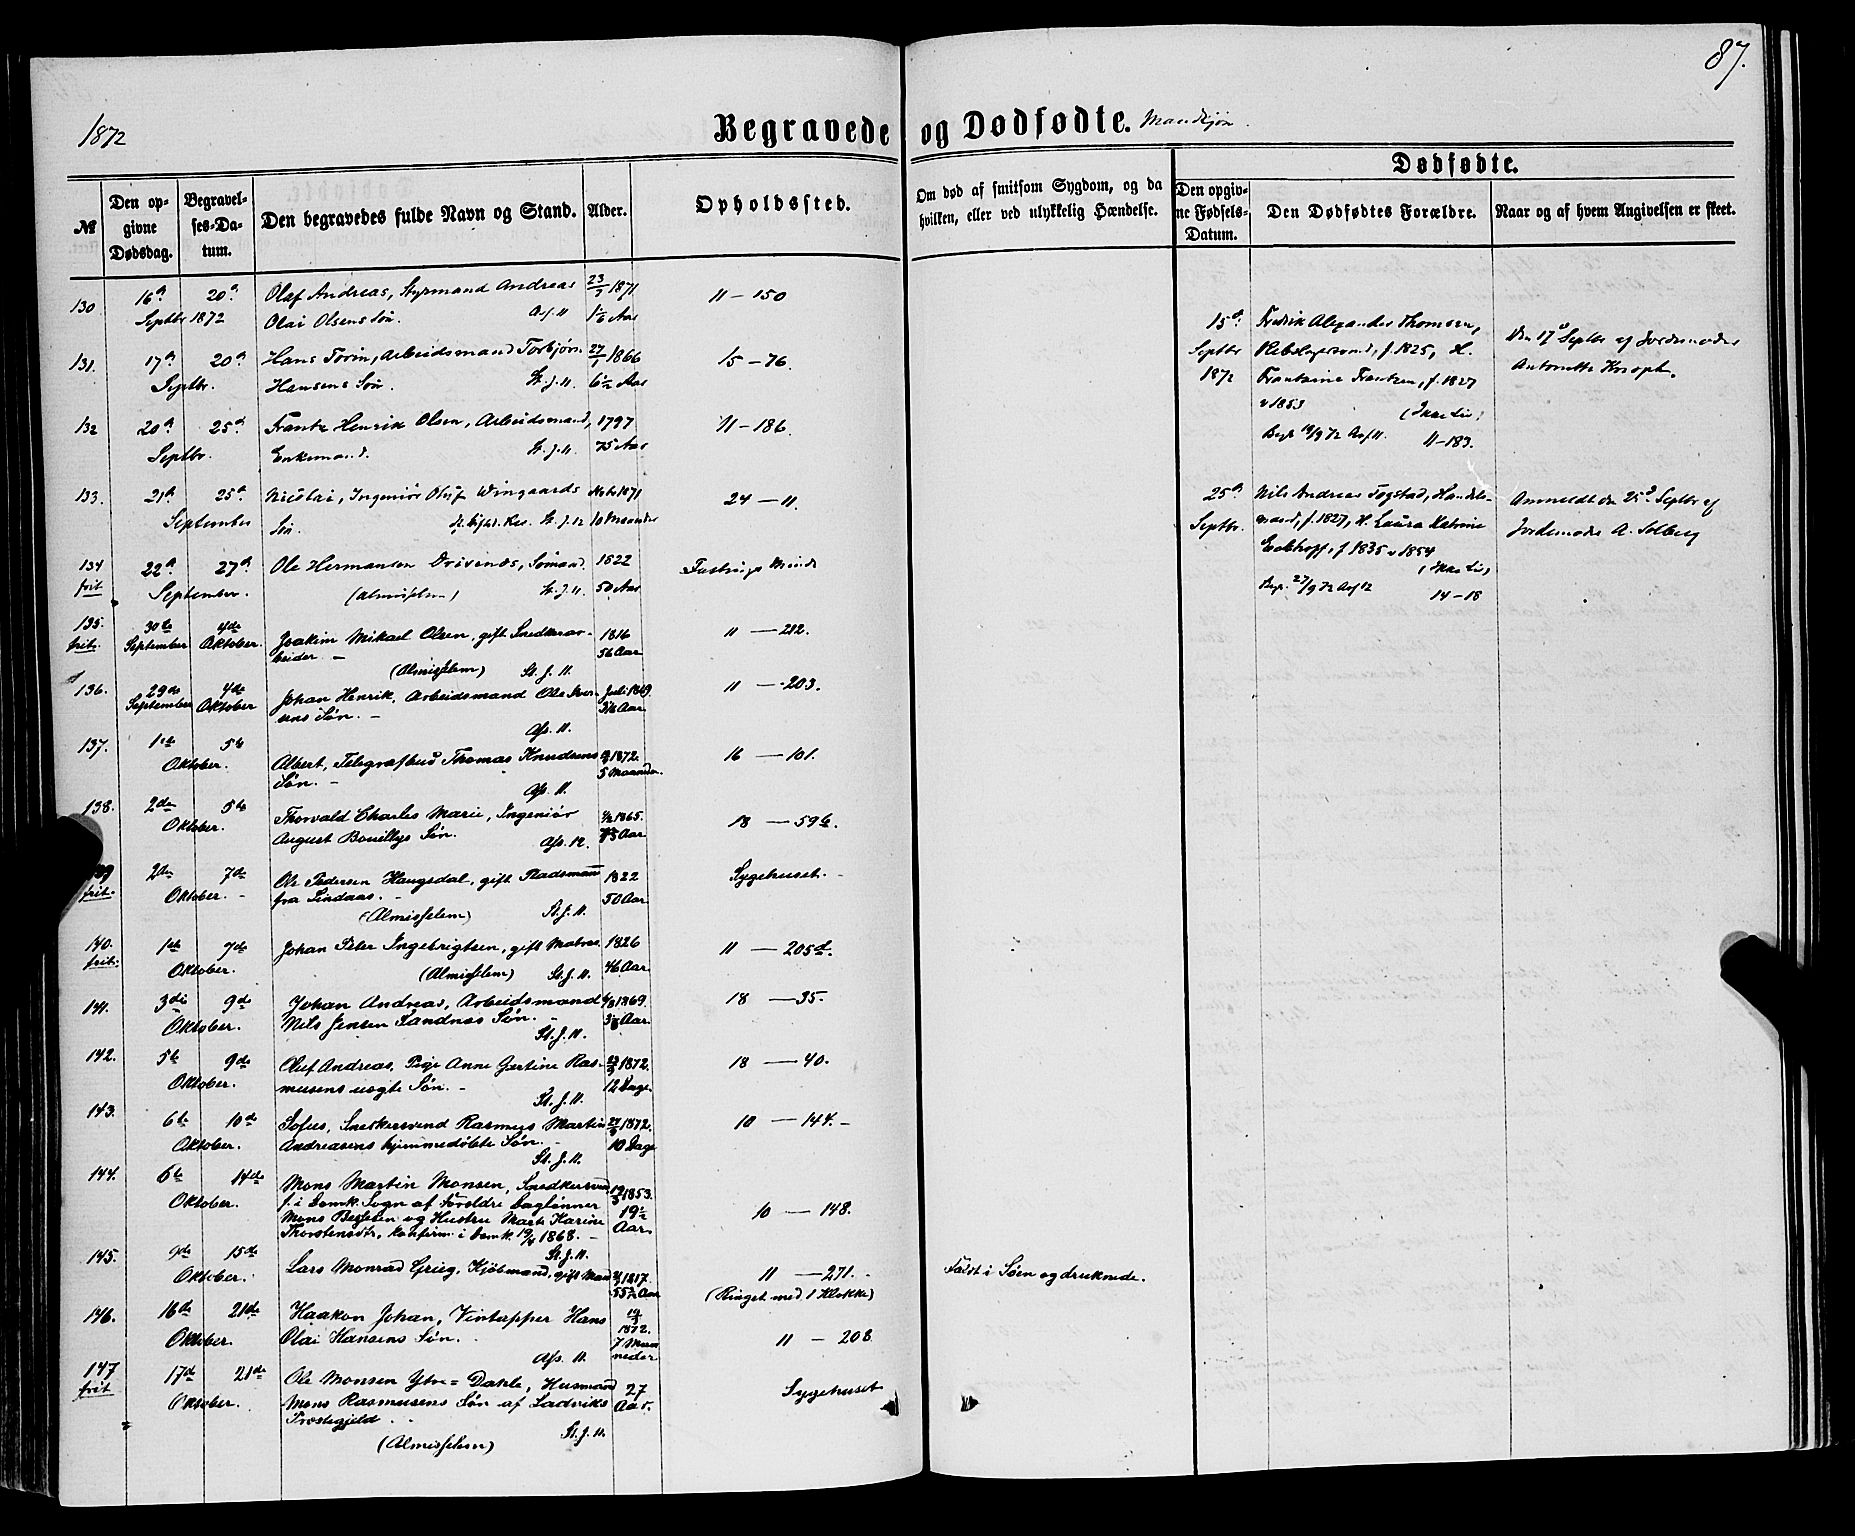 87.
1872
Begravede og Dødfødte. Mandkjøn.
№
Den opgivne Dødsdag.
Begravelses-Datum.
Den begravedes fulde Navn og Stand.
Alder.
Opholdssted.
Om død af smitsom Sygdom, og da hvilken, eller ved ulykkelig Hændelse.
Dødfødte.
Den opgivne Fødsels-Datum.
Den Dødfødtes Forældre.
Naar og af hvem Angivelsen er skeet.
130 16de 20de Olaf Andreas, Styrmand Andreas 1871 11 – 150
Septbr 1872 Olai Olsens Søn. Aar
131. 17de 20de Hans Arbeidsmand Torbjørn 1866 15 – 76.
Septbr. Hansens Søn. St. J. 11. 6½ Aar
132 20de 25de Frantz Henrik Olsen, Arbeidsmand, 1797 11 – 186.
Septbr. Enkemand. St. J. 11. 75 Aar
133. 21de 25de Nicolai, Ingeniør Oluf Wingaards 1871 24 – 11.
September Søn. St. J. 12 10 Maaneder
134 22de 27de Ole Hermansen Sømand. 1822
frit September. (Almisselem) St. J. 11. 50 Aar
135. 30te 4de Joakim Mikael Olsen, gift Snedkerar- 1816 11 — 212.
frit. September Oktober. beider – 56 Aar
(Almisselem) St. J. 11.
136. 29de 4de Johan Henrik, Arbeidsmand Ole Iver- Juli 1869. 11 — 203.
September Oktober sens Søn. – Aar
Afs. 11.
137. 1ste 5te Albert, Telegrafbud Thomas Knudsens 1872. 16 — 101.
Oktober. Søn. – 5 Maaneder
Afs. 11.
138. 2den 5te Thorvald Charles Marie, Ingeniør 1865. 18 — 59b.
Oktober. August Bouillys Søn. Afs. 12. Aar
2den 7de Ole Pedersen Haugsdal, gift Pladsmann 1822 Sygehuset. –
frit. Oktober. – fra Lindaas. – 50 Aar
(Almisselem) St. J. 11.
140. 1ste 7de Johan Peter Ingebrigtsen, gift Matros 1826 11 — 205d.
frit. Oktober. (Almisselem) St. J. 11. 46 Aar.
141. 3die 9de Johan Andreas, Arbeidsmand 1869. 18 — 35.
Oktober. Nils Jensen Sandnæs Søn. – Aar.
St. J. 11.
142. 5te 9de Oluf Andreas, Pige Anne Gjertine Ras- 1872. 18 — 40.
Oktober. musens uægte Søn. – 12 Dage.
St. J. 11.
143. 6te 10de Sofus, Snedkersvend Rasmus Martin 1872. 10 — 144. –
Oktober. Andreasens hjemmedøbte Søn. – 10 Dage
St. J. 11.
144. 6te 14de Mons Martin Monsen, Snedkersvend 1853. 10 — 148.
Oktober. f. i Domk. Sogn af Forældre Daglønner 19½
Mons og Hustru Marte Karine Aar.
Thorstensdtr, konfirm. i Domk. 19/4 1868. –
St. J. 11.
145. 9de 15de Lars Monrad Grieg, Kjøbmand, gift Mand 1817. 11 — 271. – Faldt i Søen og druknede.
Oktober. 55½ Aar (Ringet med 1 Klokke)
146. 16de 21de Haakon Johan, Vintapper Hans 1872. 11 – 208
Oktober. Olai Hansens Søn. 7 Maaneder
Afs. 11.
147 17de 21de Ole Monsen Ytre=Dahle, Husmand 27 Sygehuset
frit Oktober. Mons Rasmusens Søn af Ladviks Aar.
Prestegjeld
(Almisselem) St. J. 11.
15de Fredrik Alexander Thomsen, Den 17de Septbr af Jordemoder
Septbr f. 1825, H. Antonette
1872 Frantzen, f. 1827
v 1853 (Ikke Liv)
Begr 19/9 72 Asf 11. 11–183.
25de Nils Andreas Fogstad, Handels- Anmeldt den 25de Septbr af
Septbr. mand, f. 1827, H. Laura Katrine Jordemoder A. Solberg
f 1835 v 1854
(Ikke Liv)
Begr. 27/9 72 Asf 12 14–18